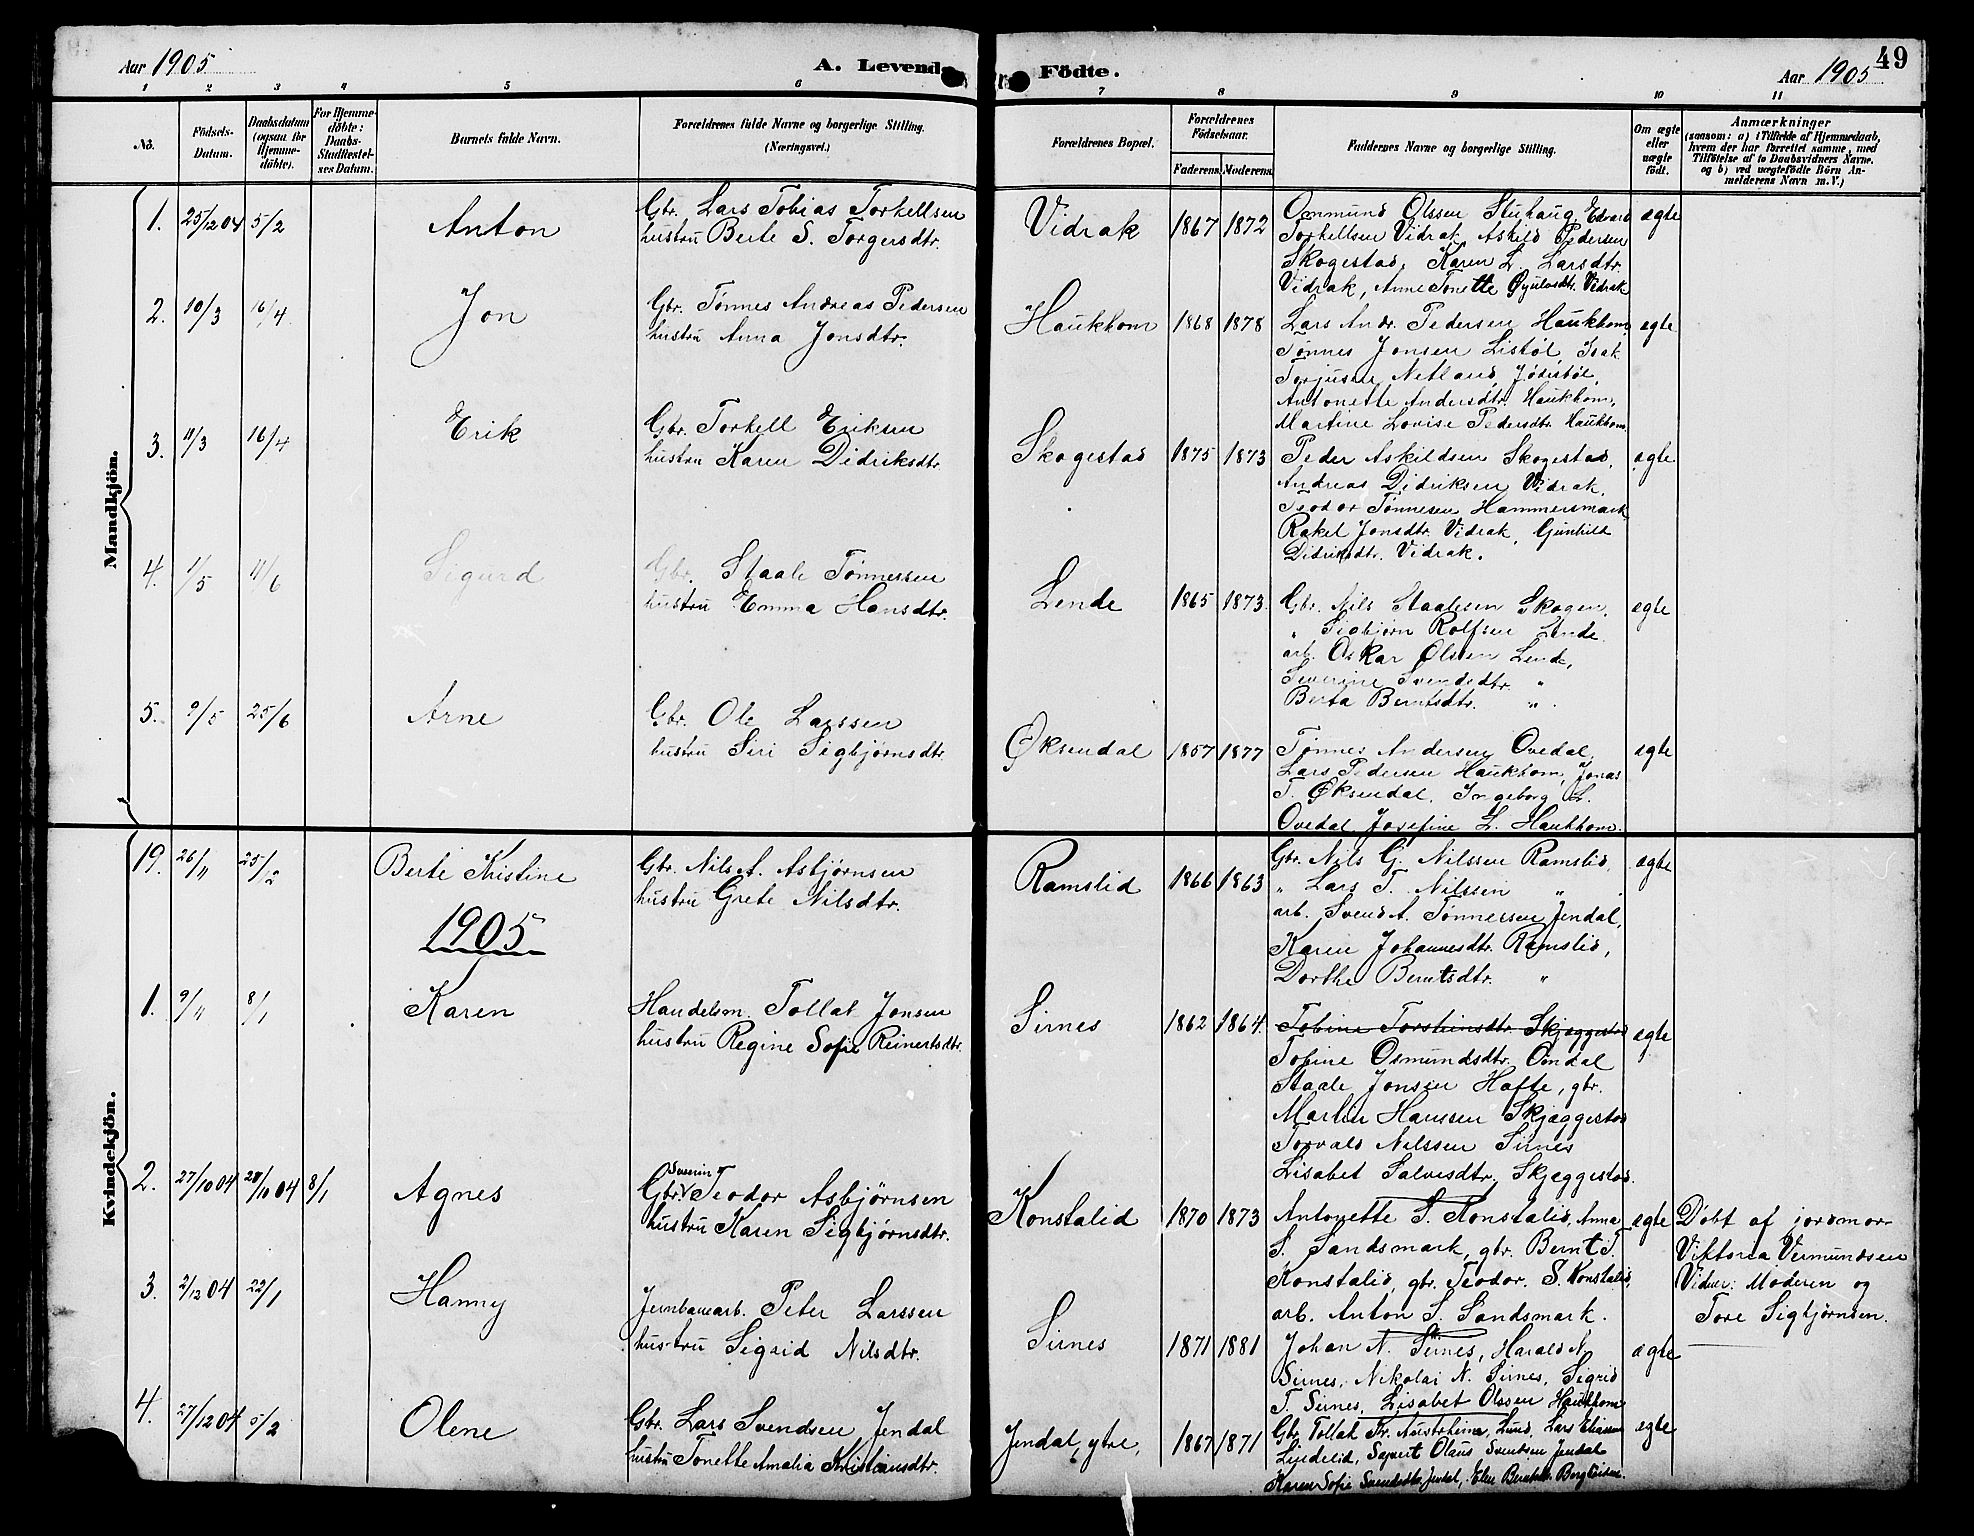 Aar 1905
A. Levende
Födte.
Aar 1905
49
1 2 3 4 5 6 7 8 9 10 11
No.
Födsels-
Datum.
Daabsdatum
(ogsaa for
Hjemme-
döbte).
For Hjemme-
döbte:
Daabs-
Stadfæstel-
ses Datum.
Barnets fulde Navn.
Forældrenes fulde Navne og borgerlige Stilling.
(Næringsvei.)
Forældrenes Bopæl.
Forældrenes
Födselsaar.
Faderens. Moderens.
Faddernes Navne og borgerlige Stilling.
Om ægte
eller
uægte
född.
Anmærkninger
(saasom: a) i Tilfælde af Hjemmedaab,
hvem der har forrettet samme, med
Tilföielse af to Daabsvidners Navne.
og b) ved uægtefödte Börn An-
melderens Navn m. V.)
Mandkjön.
1. 25/12 04 5/2 Anton
Gbr. Lars Tobias Torkellsen
hustru Berte S. Torgersdtr.
Vidrak 1867 1872
Ommund Olssen Stuhaug, Edvard
Torkellsen Vidrak, Askild Pedersen
Skogestad, Karen L. Larsdtr.
Vidrak, Anne Tonette Vidrak
ægte
2. 10/3 16/4 Jon
Gbr. Tønnes Andreas Pedersen
hustru Anna Jonsdtr.
Haukhom 1868 1878
Lars Andr. Pedersen Haukhom,
Tønnes Jonsen Listøl, Isak
Torjussen Netland,
Antonette Andersdtr. Haukhom,
Martine Lovise Pedersdtr. Haukhom
ægte
3. 11/3 16/4 Erik
Gbr. Torkell Eriksen
hustru Karen Didriksdtr.
Skogestad 1875 1873
Peder Askildsen Skogestad,
Andreas Didriksen Vidrak,
Teodor Tønnesen Hammersmark
Rakel Jonsdtr. Vidrak, Gunhild
Didriksdtr. Vidrak.
ægte
4. 1/5 11/6 Sigurd
Gbr. Staale Tønnessen
hustru Emma Hansdtr.
Lende 1865 1873
Gbr. Nils Staalesen Skogen,
" Sigbjørn Rolfsen Lende
arb. Oskar Olssen Lende,
Severine Svendsdtr. "
Berta Berntsdtr. "
ægte
5. 9/5 25/6 Arne
Gbr. Ole Larssen
hustru Siri Sigbjørnsdtr.
Øksendal 1857 1877
Tønnes Andersen Ovedal,
Lars Pedersen Haukhom, Jonas
T. Øksendal, Ingeborg L.
Ovedal, Josefine L. Haukhom.
ægte
Kvindekjön.
19. 26/11 25/12 Berte Kristine
Gbr. Nils A. Asbjørnsen
hustru Grete Nilsdtr.
Ramslid 1866 1863
Gbr. Nils G. Nilssen Ramslid,
" Lars T. Nilssen "
arb. Svend A. Tønnessen Jendal,
Karen Johannesdtr. Ramslid,
Dorthe Berntsdtr. "
ægte
1905
1. 9/11 8/1 Karen
Handelsm. Tollak Jonsen
hustru Regine Sofie Reinertsdtr.
Sirnes 1862 1864
Tobine Torsteinsdtr. Skjeggestad
Tobine Osmundsdtr. Omdal
Staale Jonsen Hafte, gbr.
Martin Hanssen Skjæggestad
Torvald Nilssen Sirnes
Lisabet Salvesdtr. Skjeggestad.
ægte
2. 27/10 04 28/10 04 8/1 Agnes
Severin
Gbr. Teodor Asbjørnsen
hustru Karen Sigbjørnsdtr.
Konstalid 1870 1873
Antonette S. Konstalid, Anna
S. Sandsmark, gbr. Bernt T.
Konstalid, gbr. Teodor S. Konstalid,
arb. Anton S. Sandsmark.
ægte
Døbt af jordmor
Viktoria Vermundsen
Vidner: Moderen og
Tore Sigbjørnsen.
3. 2/12 04 22/1 Hanny
Jernbanearb. Peter Larssen
hustru Sigrid Nilsdtr.
Sirnes 1871 1881
Johan N. Sirnes, Harald N.
Sirnes, Nikolai N. Sirnes, Sigrid
T. Sirnes, Lisabet Olssen Haukhom
ægte
4. 27/12 04 5/2 Olene
Gbr. Lars Svendsen Jendal
hustru Tonette Amalia Kristiansdtr.
Jendal, ytre, 1867 1871
Gbr. Tollak Tr. Austrheim, Lund, Lars
Lindelid, Sigvart Olaus Svendsen Jendal
Karen Sofie Svendsdtr. Jendal, Elen
ægte